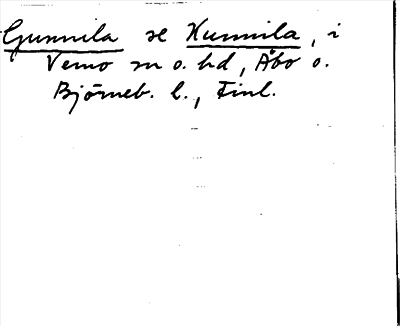 Gunnila se Kunnila, i
Vemo sn o. hd, Åbo o.
Björneb. l., Finl.